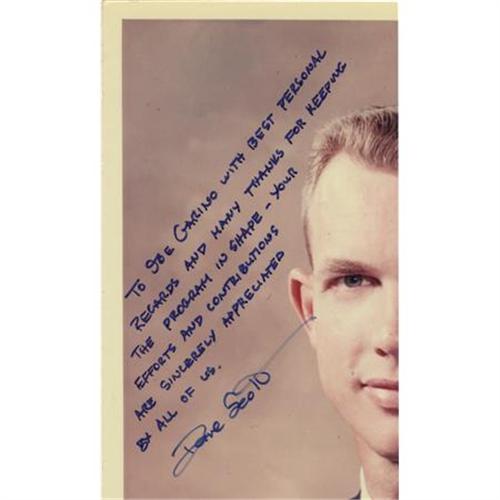 TO JOE GARINO WITH BEST PERSONAL
REGARDS AND MANY THANKS FOR KEEPING
THE PROGRAM IN SHAPE - YOUR
EFFORTS AND CONTRIBUTIONS
ARE SINCERELY APPRECIATED
BY ALL OF US.
Dave Scott